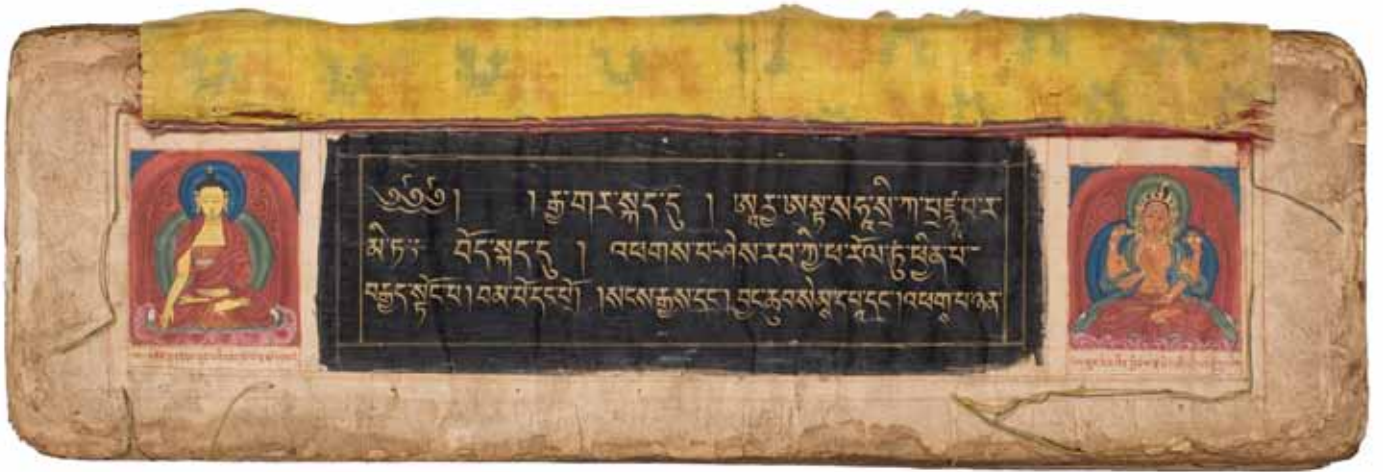 ༄༅༅། །རྒྱ་གར་སྐད་དུ ། ཨཱརྱ་ཨསྟ་སཧཱ་སྲི་ཀ་པྲཛྙཱ་པ་ར
མི་ཏ༔ བོད་སྐད་དུ ། འཕགས་པ་ཤེས་རབ་ཀྱི་ཕ་རོལ་ཏུ་ཕྱིན་པ་
བརྒྱད་སྟོང་པ། བམ་པོ་དང་པོ། །སངས་རྒྱས་དང་། བྱང་ཆུབ་སེམས་དཔའ་དང་། འཕགས་པ་ཉན